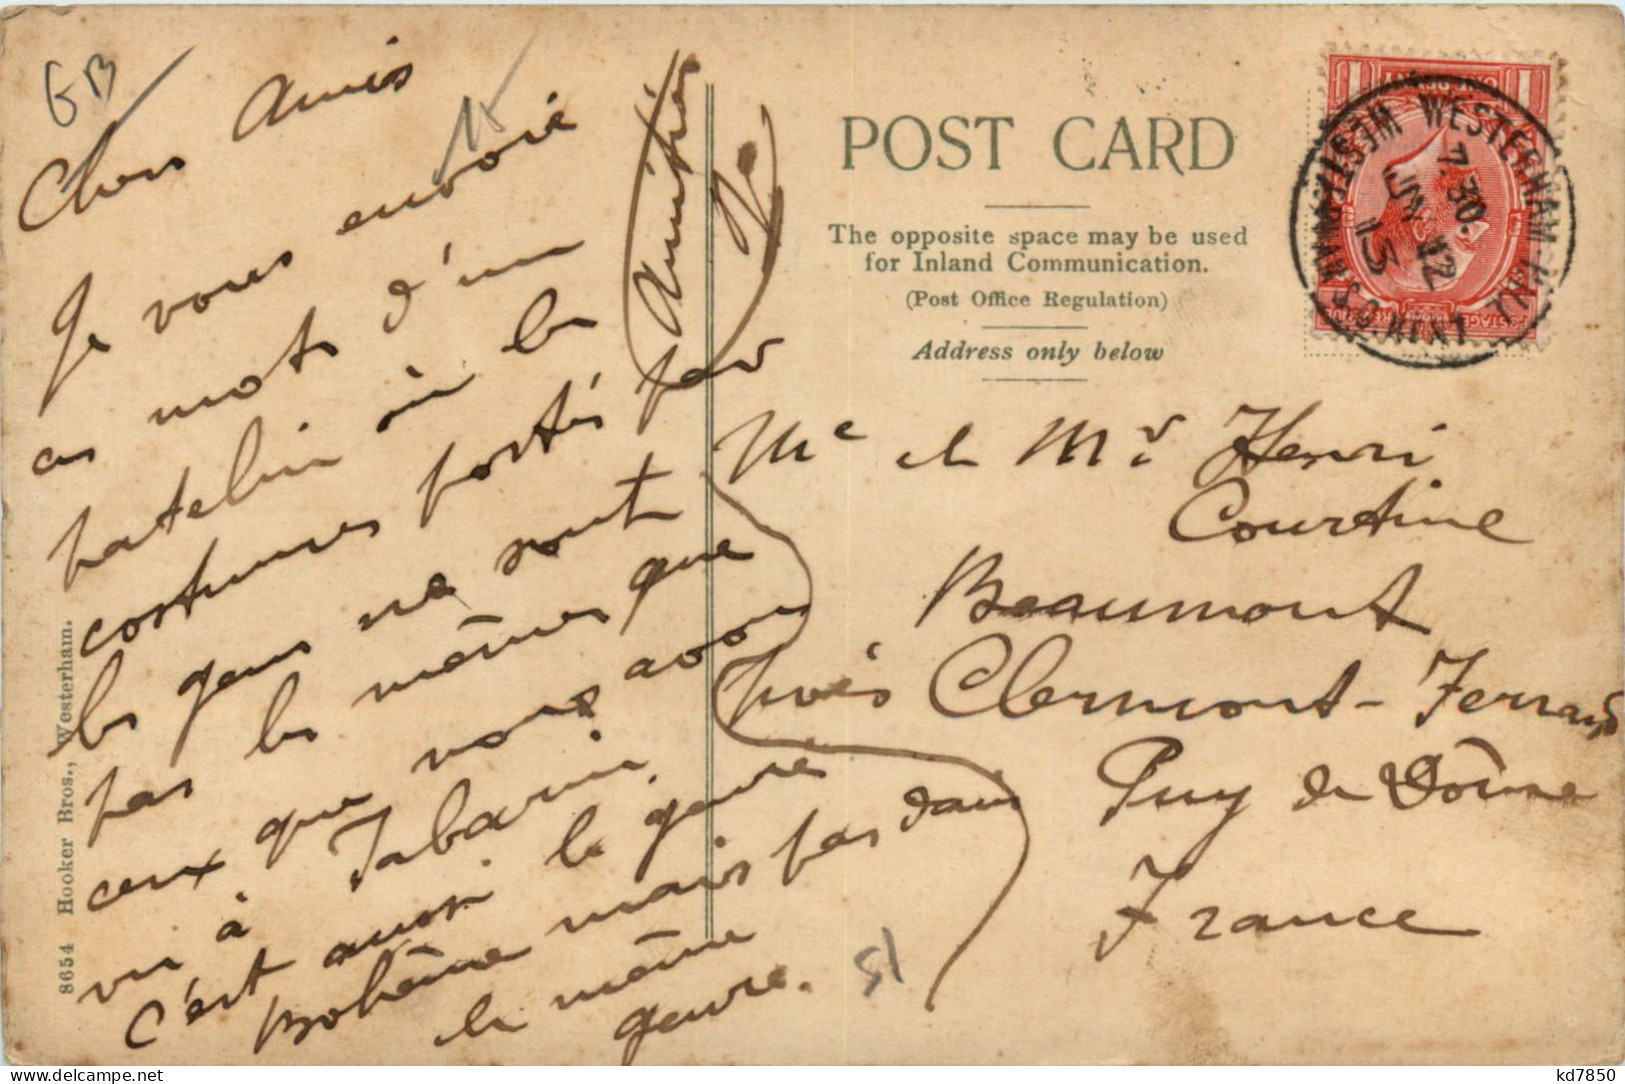 GB
Chers Amis
Je vous envoie
ces mots d'un
patelin où les
costumes portés par
les gens ne sont
pas les mêmes que
ceux que nous avons
vu à Tabarin.
C'est aussi le genre
Bohême mais pas dans
le même
genre.
Amitiés
POST CARD
The opposite space may be used
for Inland Communication.
(Post Office Regulation)
Address only below
WESTERHAM WESTERHAM
7.30.
JN 12
13
S.O. KENT
Me et Mr Henri
Courtine
Beaumont
près Clermont-Ferrand
Puy de Dôme
France
51
8654 Hooker Bros., Westerham.
kd7850